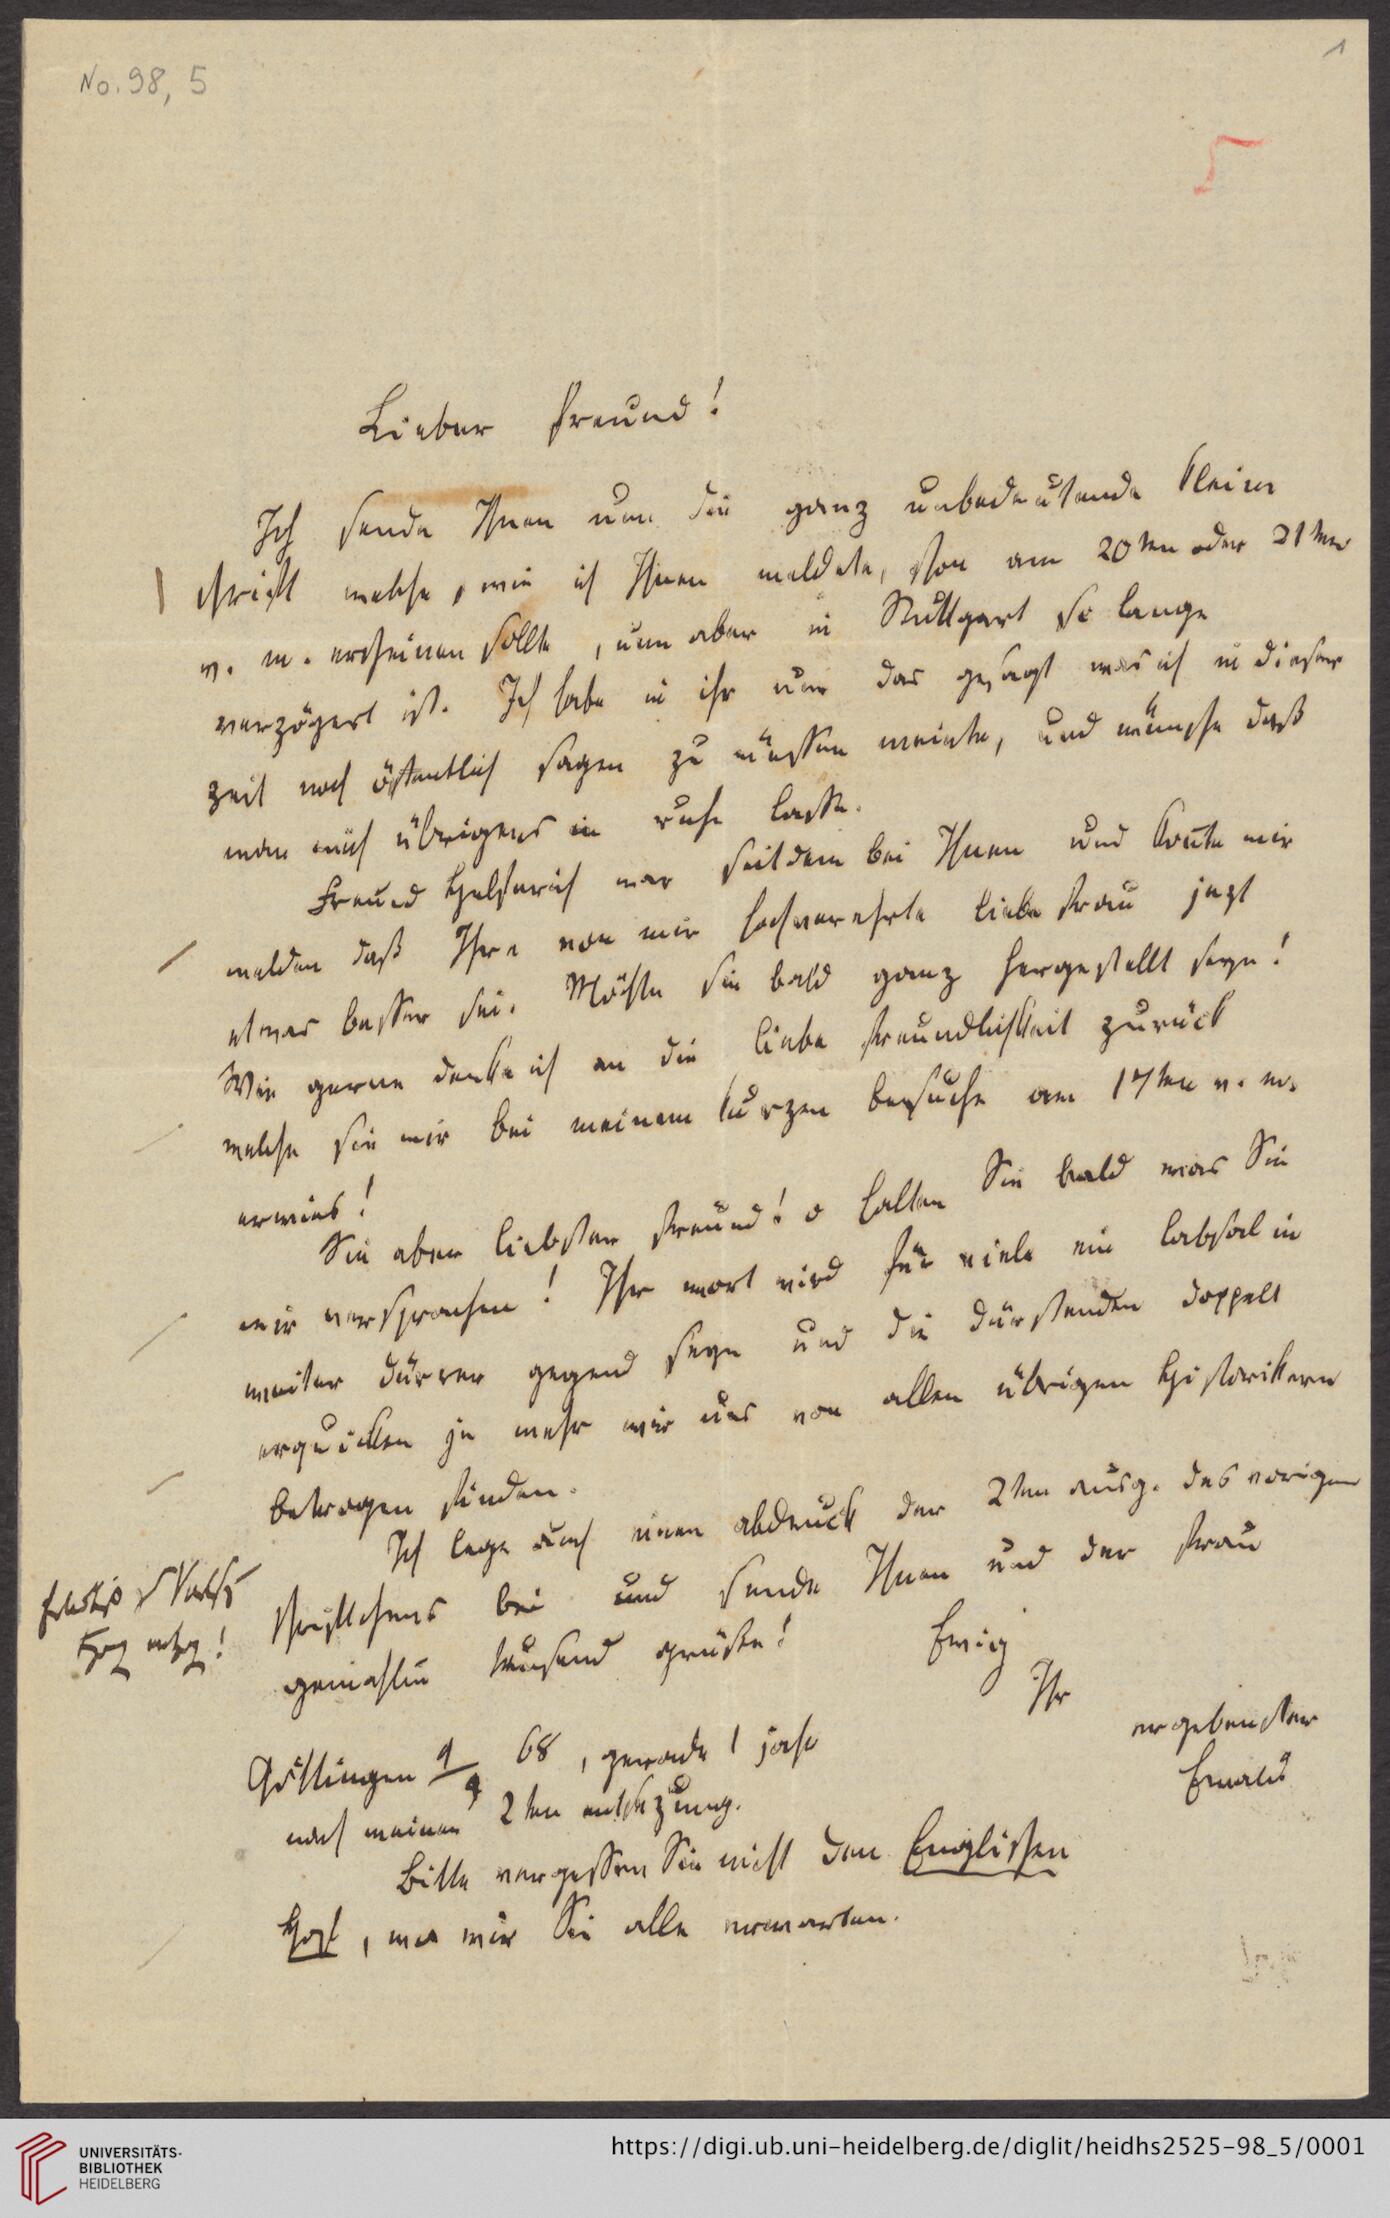 No. 98, 5
1
5
Lieber freund!
Ich sende Ihnen nun die ganz unbedeutende kleine
schrift welche, wie ich Ihnen meldete, schon am 20ten oder 21ten
v. m. erscheinen sollte, nun aber in Stuttgart so lange
verzögert ist. Ich habe in ihr nur das gesagt was ich in dieser
zeit noch öffentlich sagen zu müssen meinte, und wünsche daß
man mich übrigens in ruhe lasse.
Freund Helferich war seitdem bei Ihnen und konte mir
melden daß Ihre von mir hochverehrte liebe frau jezt
etwas besser sei. Möchte sie bald ganz hergestellt seyn!
Wie gerne denke ich an die liebe freundlichkeit zurück
welche sie mir bei meinem kurzen besuche am 17ten v. m.
erwies!
Sie aber liebster freund! o halten Sie bald was Sie
mir versprachen! Ihr wort wird für viele ein labsal in
weiter dürrer gegend seyn und die dürstenden doppelt
erquicken je mehr wir uns von allen übrigen Historikern
betrogen finden.
Ich lege auch einen abdruck der 2ten ausg. des vorigen
schriftchens bei und sende Ihnen und der frau
gemahlin tausend grüße!
Ewig
Ihr
ergebenster
Ewald
Göttingen 9/9 68, gerade 1 jahr
nach meiner 2ten entsezung.
Bitte vergessen Sie nicht den Englischen
Hof, wo wir Sie alle erwarten.
UNIVERSITÄTS-
BIBLIOTHEK
HEIDELBERG
https://digi.ub.uni-heidelberg.de/diglit/heidhs2525-98_5/0001